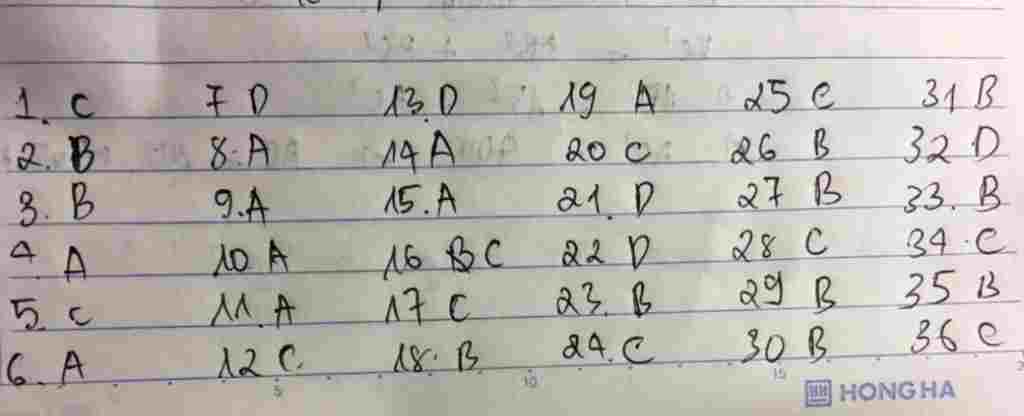 1. C 7 D 13. D 19 A 25 C 31 B
2. B 8. A 14 A 20 C 26 B 32 D
3. B 9. A 15. A 21. D 27 B 33. B
4. A 10 A 16 B C 22 D 28 C 34. C
5. C 11. A 17 C 23. B 29 B 35 B
6. A 12 C. 18. B 24. C 30 B 36 C
5 10 15
HH HONG HA